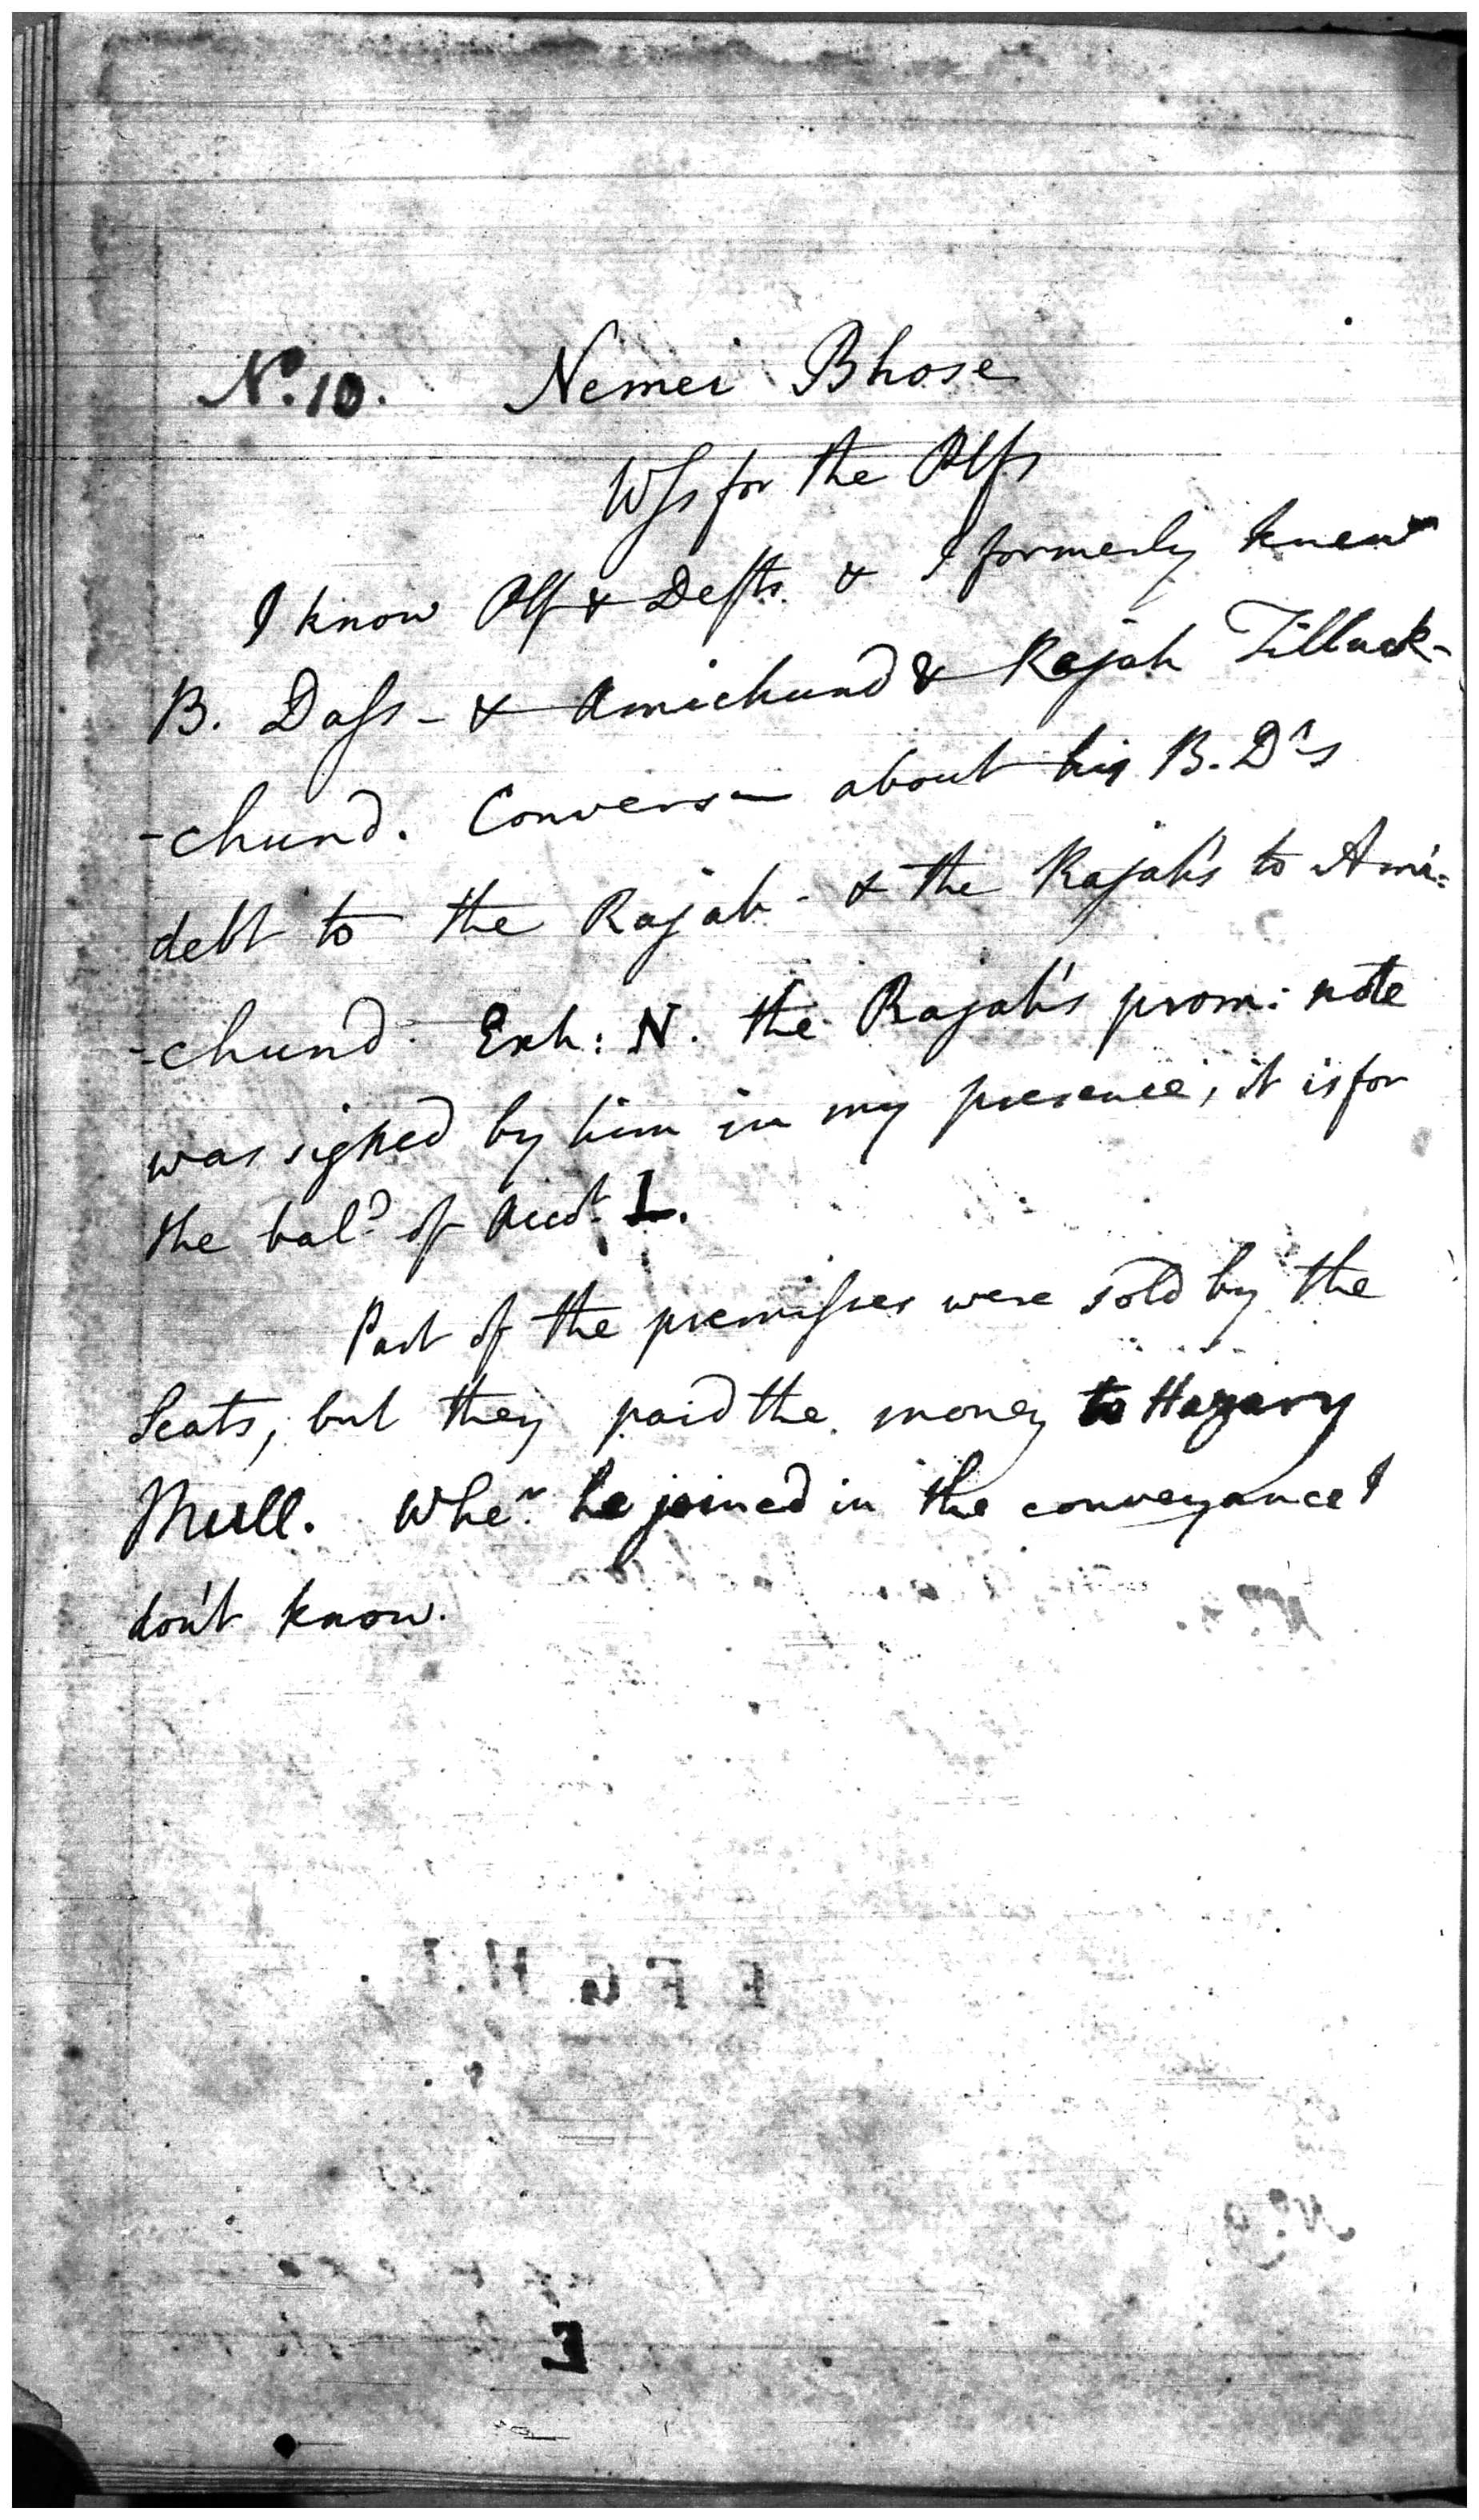 No. 10. Nemei Bhose
Wss for the Plfs
I know Plf & Defts. & I formerly knew
B. Dass - & Amichund & Rajah Tilluck-
-chund. Convers— about his B. D's
debt to the Rajah - & the Rajah's to Ami-
-chund. Exh: N. the Rajah's prom: note
was signed by him in my presence, it is for
the bal? of Acct. L.
Part of the premisses were sold by the
Seats, but they paid the money to Hazary
Mull. Wher. he joined in the conveyance I
don't know.
E F G H. I.
No. 9
E